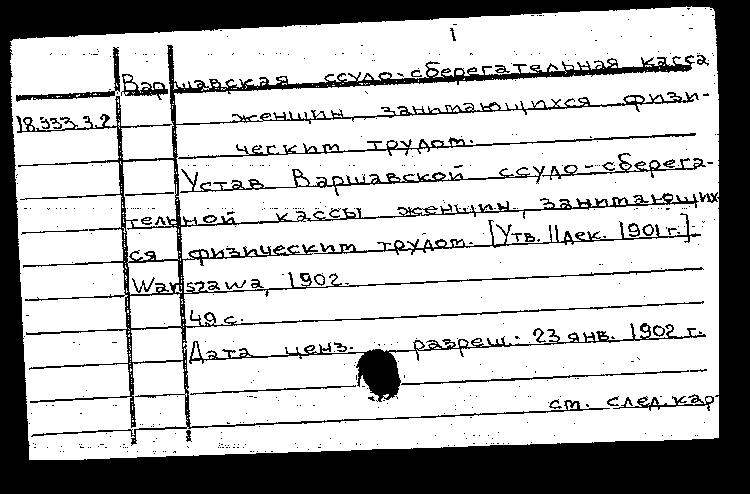 I
Варшавская ссудо-сберегательная касса
18.933.3.2 женщин, занимающихся физи-
ческим трудом.
Устав Варшавской ссудо-сберега-
тельной кассы женщин, занимающих
ся физическим трудом. [Утв. 11 дек. 1901 г.].
Warszawa, 1902.
49 с.
Дата ценз. разреш.: 23 янв. 1902 г.
см. след. кар